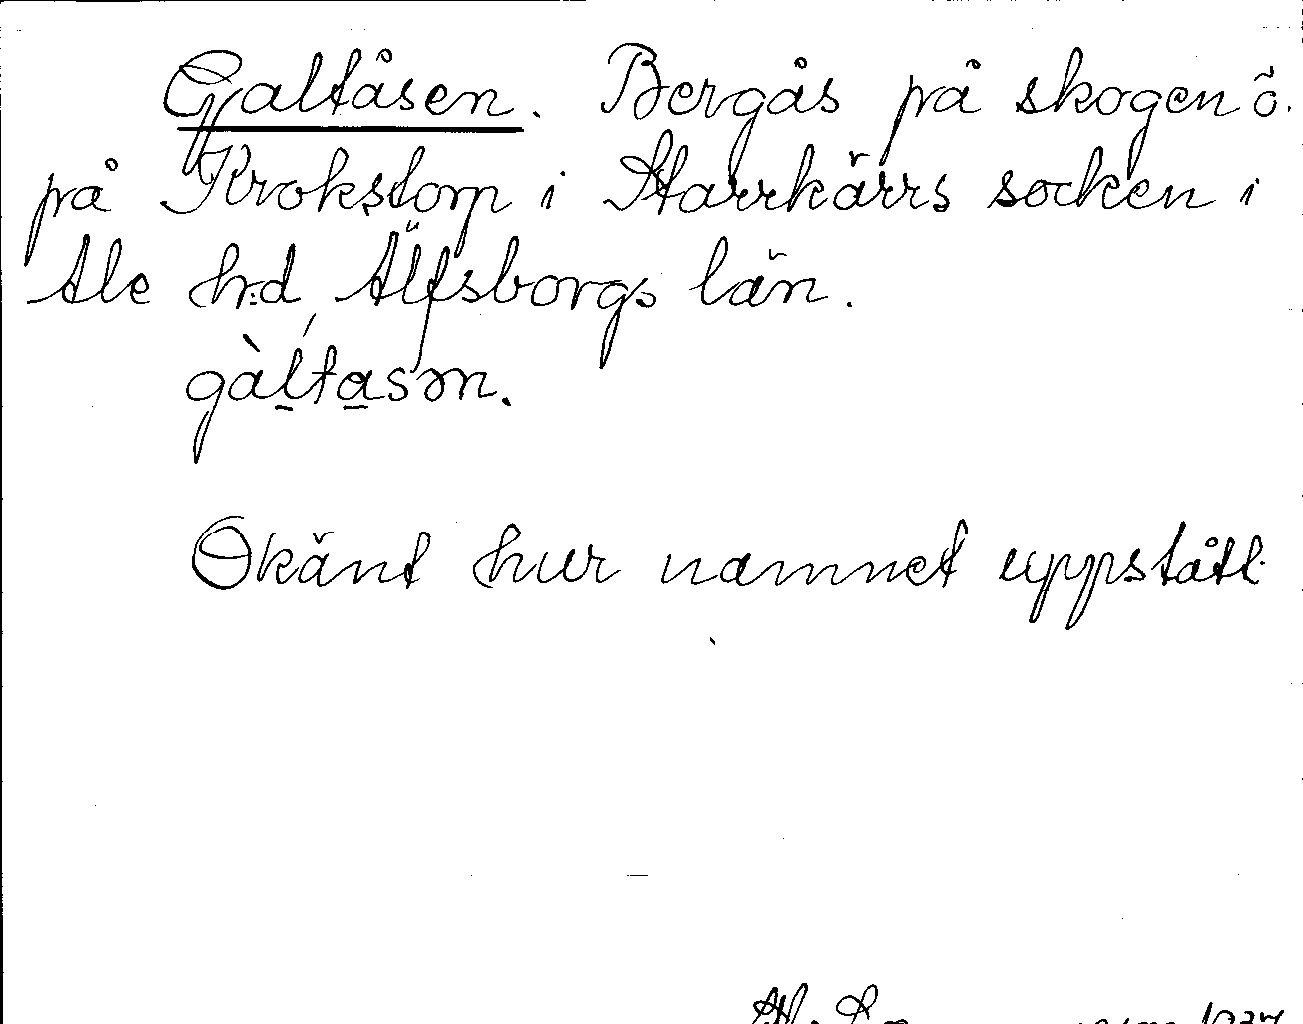 Galtåsen. Bergås på skogen ö.
på Krokstorp i Starrkärrs socken i
Ale h:d, Älfsborgs län.
gàltasən.
Okänt hur namnet uppstått.